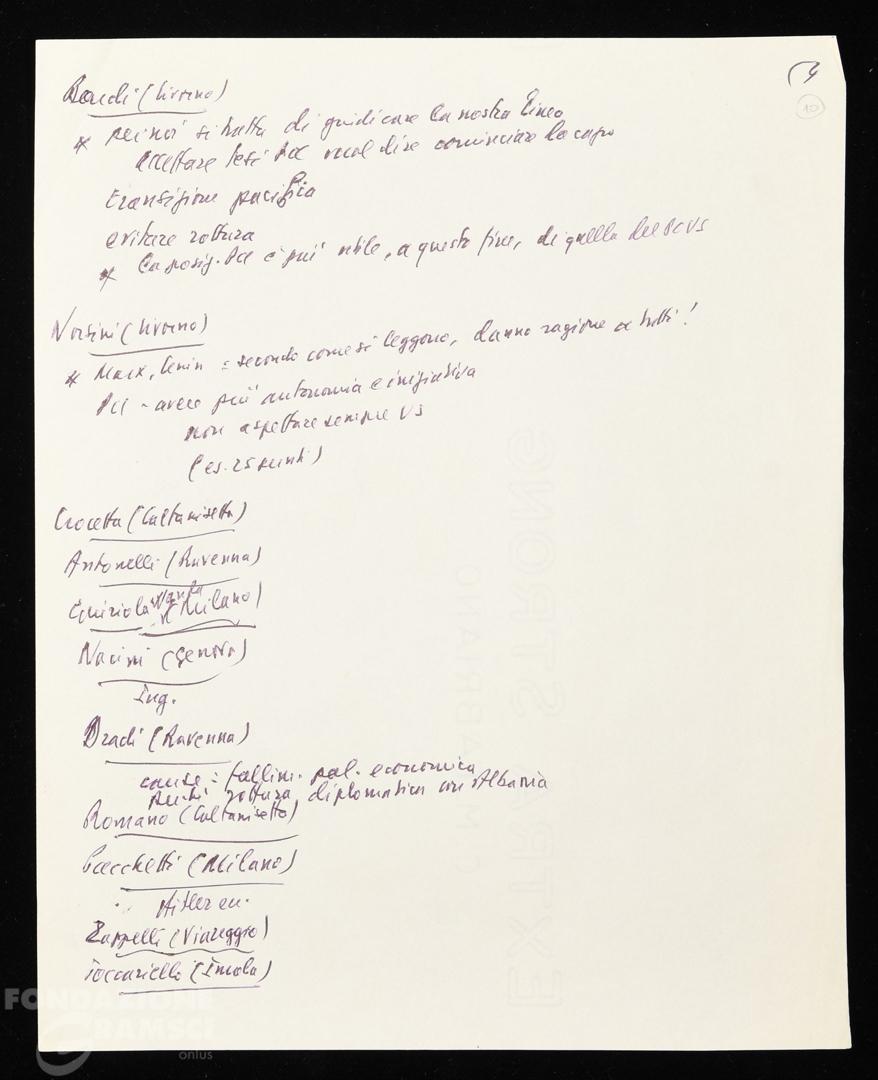 4
10
Bondi (Livorno)
* per noi si tratta di giudicare la nostra linea
accettare tesi PCC vuol dire cominciare da capo
transizione pacifica
evitare rottura
* la posiz. PCI è più utile, a questo fine, di quella del PCUS
(Livorno)
* Marx, Lenin = secondo come si leggono, danno ragione a tutti!
PCI - avere più autonomia e iniziativa
non aspettare sempre US
(es. 25 punti)
Crocetta (Caltanisetta)
Antonelli (Ravenna)
Wanda (Milano)
Nacini (Genova)
Ing.
Dradi (Ravenna)
cause: fallim. pol. economica
rottura diplomatica con Albania
Romano (Caltanisetta)
Bacchetti (Milano)
Zappelli (Viareggio)
Toccarielli (Imola)
EXTRA STRONG
C.M.FABRIANO
FONDAZIONE
GRAMSCI
onlus